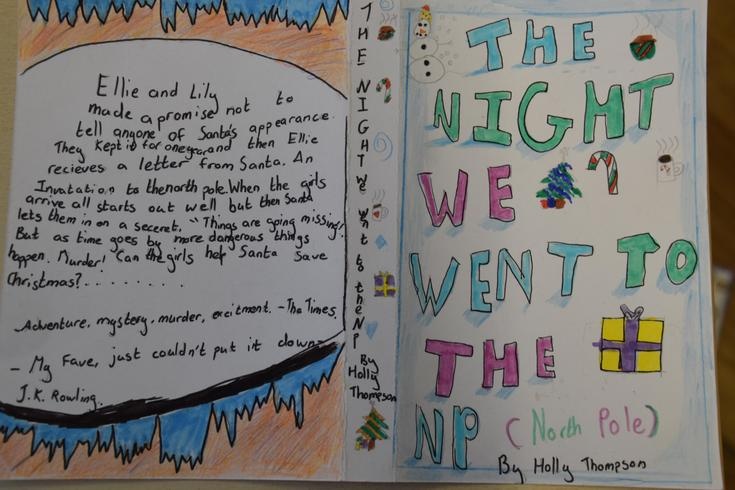 Ellie and Lily
made a promise not to
tell anyone of Santa's appearance.
They kept it for one year and then Ellie
recieves a letter from Santa. An
Invatation to the north pole. When the girls
arrive all starts out well but then Santa
lets them in on a seceret. "Things are going missing!
But as time goes by more dangerous things
happen. Murder! Can the girls help Santa save
Christmas?.........
Adventure, mystery, murder, excitment. - The Times.
- My fave, just couldn't put it down -
J.K. Rowling.
THE NIGHT We Wnt to the NP
By
Holly
Thompson
THE
NIGHT
WE
WENT TO
THE
NP (North Pole)
By Holly Thompson